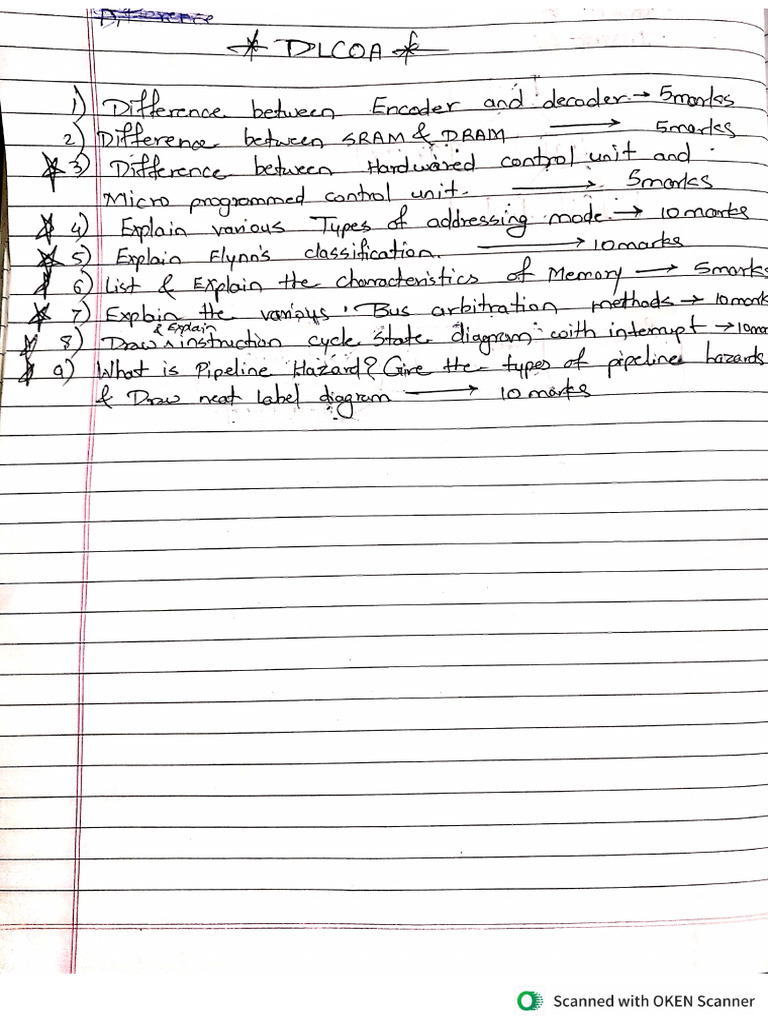 Difference
* DLCOA *
1) Difference between Encoder and decoder → 5 marks
2) Difference between SRAM & DRAM → 5 marks
3) Difference between Hardwared control unit and
Micro programmed control unit. → 5 marks
4) Explain various Types of addressing mode. → 10 marks
5) Explain Flynn's classification. → 10 marks
6) List & Explain the characteristics of Memory → 5 marks
7) Explain the various Bus arbitration methods → 10 mark
& Explain
8) Draw instruction cycle state diagram with interrupt → 10 mar
9) What is Pipeline Hazard? Give the types of pipeline hazards
& Draw neat label diagram → 10 marks
Scanned with OKEN Scanner